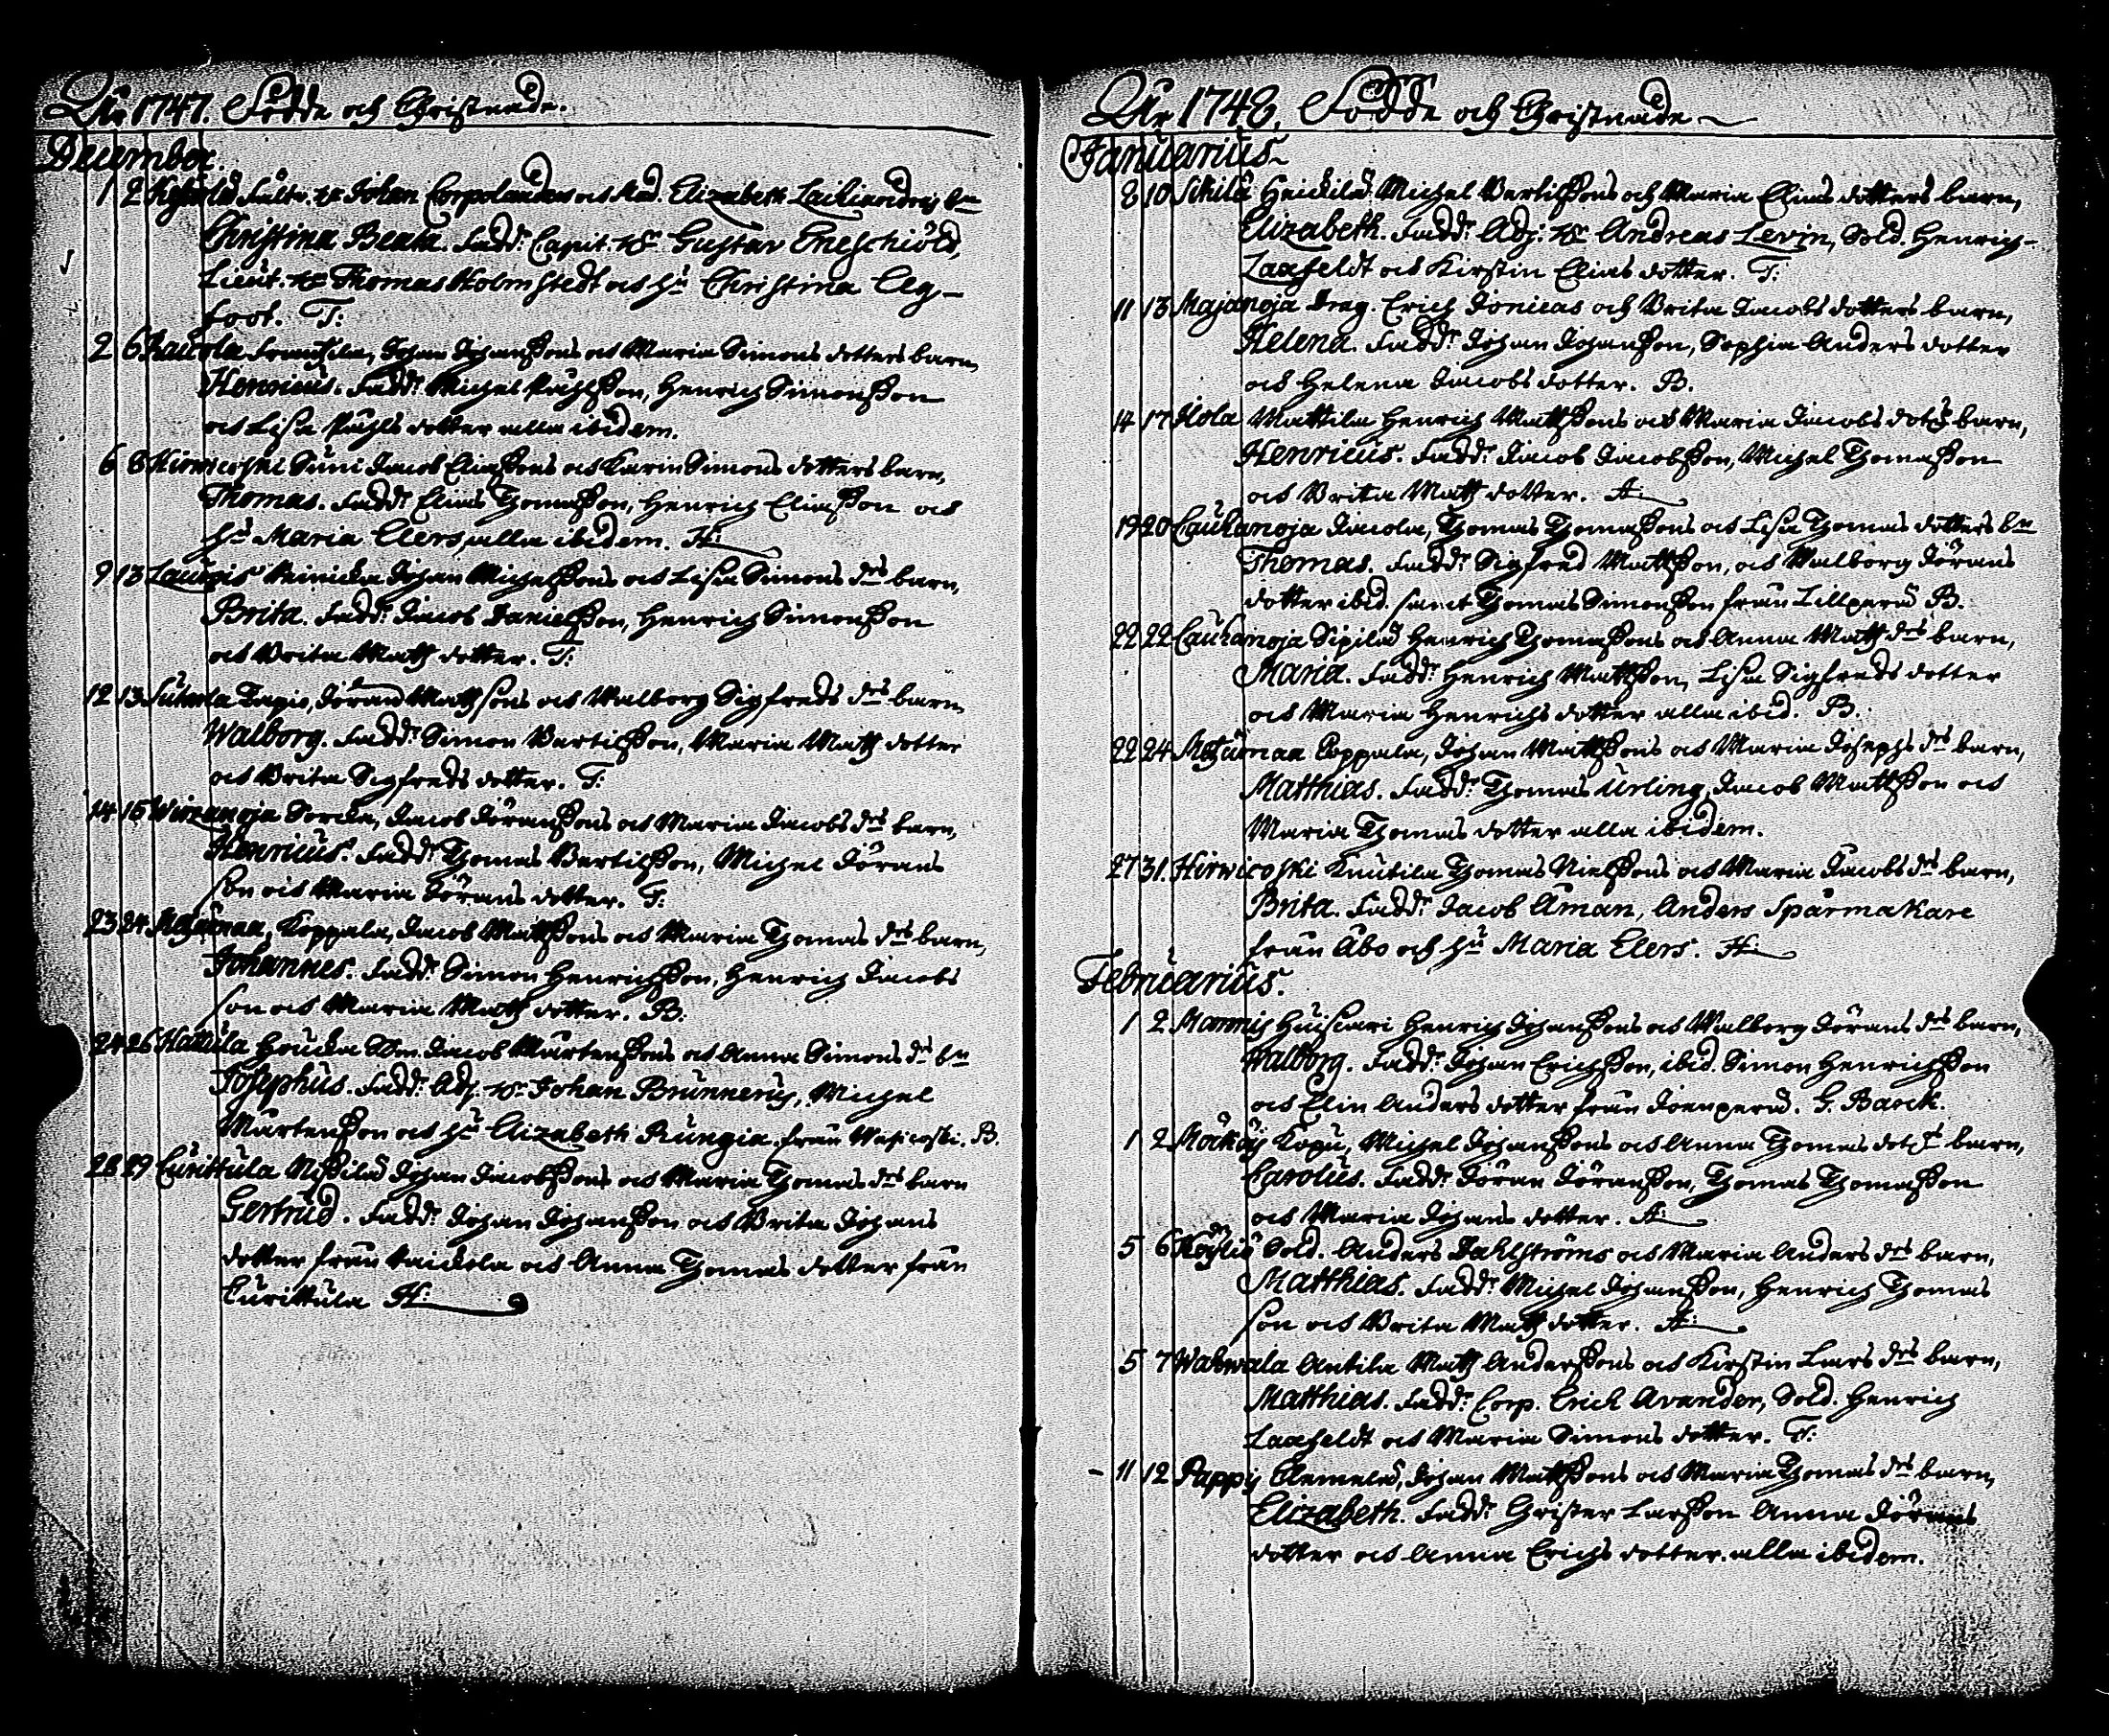 Åhr 1747. Födde och Christnade.
December.
1 2 Fältv. Hr Johan Corpolander och Mad. Elizabeth Lailiandris bn
Christina Beata. Fadd: Capit. Hr Gustav Eneschiöld,
Lieut. Hr Thomas Holmstedt och hu Christina Leg-
foot. T:
2 6 Raukola Franssila, Johan Johanssons och Maria Simons dotters barn,
Henricus. Fadd: Michel Påhlsson, Henrich Simonsson
och Lisa Påhls dotter alla ibidem.
6 8 Hirwicoski Suni Jacob Eliassons och Karin Simons dotters barn,
Thomas. Fadd: Elias Thomasson, Henrich Eliasson och
hu Maria Elers, alla ibidem. H:
9 13 Laurois Heinicka Johan Michelssons och Lisa Simons drs barn,
Brita. Fadd: Jacob Danielsson, Henrich Simonsson
och Brita Matts dotter. T:
12 13 Sukula Tapio, Jöran Mattssons och Walborg Sigfreds drs barn
Walborg. Fadd: Simon Bertilsson, Maria Matts dotter
och Brita Sigfreds dotter. T:
14 15 Wirzanoja Sorcka, Jacob Göranssons och Maria Jacobs drs barn,
Henricus. Fadd: Thomas Bertilsson, Michel Görans
son och Maria Görans dotter. T:
23 24 Metzämaa, Koppala, Jacob Mattssons och Maria Thomas drs barn,
Johannes. Fadd: Simon Henrichsson, Henrich Jacobs
son och Maria Matts dotter. B:
24 26 Hattula Houcka Jacob Mårtenssons och Anna Simons drs bn
Josephus. Fadd: Adj. Hr Johan Brunnerus, Michel
Mårtensson och hu Elizabeth Rungia från Wasicoski. B.
28 29 Curittula Nissilä Johan Jacobssons och Maria Thomas drs barn
Gertrud. Fadd: Johan Johansson och Brita Johans
dotter från och Anna Thomas dotter från
Curittula H:
Åhr 1748. Födde och Christnade
Januarius.
8 10 Sikilä Heickilä Michel Bertilssons och Maria Elias dotters barn,
Elizabeth. Fadd: Adj. Hr Andreas Levin, Sold. Henrich
Laxfeldt och Kirstin Elias dotter. T:
11 13 Majanoja Drag. Erich Jonieas och Brita Jacobs dotters barn,
Helena. Fadd: Johan Johansson, Sophia Anders dotter
och Helena Jacobs dotter. B.
14 17 Kola Mattila Henrich Mattssons och Maria Jacobs dotrs barn,
Henricus. Fadd: Jacob Jacobsson, Michel Thomasson
och Brita Matts dotter. A:
19 20 Laukanoja Jacola, Thomas Thomassons och Lisa Thomas dotters bn
Thomas. Fadd: Sigfred Mattsson, och Walborg Jörans
dotter ibid. samt Thomas Simonsson från Lillperä B.
22 22 Laukanoja Sipilä Henrich Thomassons och Anna Matts drs barn,
Maria. Fadd: Henrich Mattsson, Lisa Sigfreds dotter
och Maria Henrichs dotter alla ibid. B.
22 24 Metzämaa Coppala, Johan Mattssons och Maria Josephs drs barn,
Matthias. Fadd: Thomas Urling, Jacob Mattsson och
Maria Thomas dotter alla ibidem.
27 31. Hirwicoski Knutila Thomas Nielssons och Maria Jacobs drs barn,
Brita. Fadd: Jacob Åman, Anders Spårmakare
från Åbo och hu Maria Elers. H:
Februarius.
1 2 Mommis Huiscari Henrich Johanssons och Walborg Jörans drs barn,
Walborg. Fadd: Johan Erichsson, ibid. Simon Henrichsson
och Elin Anders dotter från Joenperä. G. Baock.
1 2 Möcköis Kopu, Michel Johanssons och Anna Thomas dotrs barn,
Carolus. Fadd: Jöran Jöransson, Thomas Thomasson
och Maria Johans dotter. A:
5 6 Köyliö Sold. Anders Dahlströms och Maria Anders drs barn,
Matthias. Fadd: Michel Johansson, Henrich Thomas
son och Brita Matts dotter. A:
5 7 Wahwala Antila Matts Anderssons och Kirstin Lars drs barn,
Matthias. Fadd: Corp. Erich Avander, Sold. Henrich
Laxfeldt och Maria Simons dotter. T:
- 11 12 Pappis Clemelä, Johan Mattssons och Maria Thomas drs barn,
Elizabeth. Fadd: Christer Larsson Anna Jörans
dotter och Anna Erichs dotter. alla ibidem.